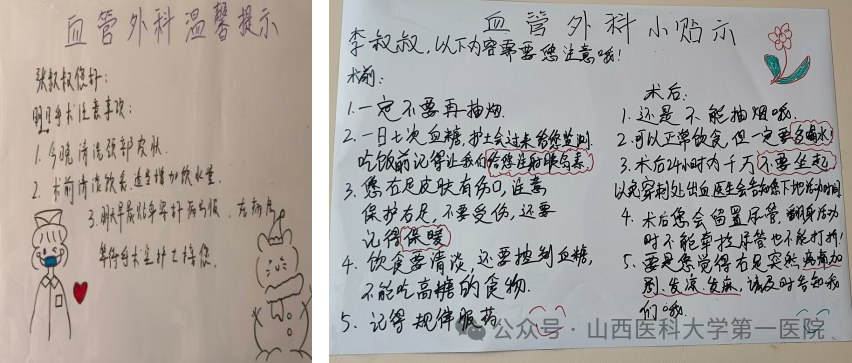 血管外科温馨提示
张叔叔您好:
明日手术注意事项:
1. 今晚清洗颈部皮肤.
2. 术前清淡饮食,适当增加饮水量.
3.明天早晨贴身穿好病号服,在病房
等待手术室护士接您.
血管外科小贴示
李叔叔,以下内容需要您注意哦!
术前:
1.一定不要再抽烟.
2.一日七次血糖,护士会过来给您监测.
吃饭前记得让我们给您注射胰岛素
3.您右足皮肤有伤口,注意
保护右足,不要受伤,还要
记得保暖
4.饮食要清淡,还要控制血糖,
不能吃高糖的食物.
5.记得规律服药.
术后:
1.还是不能抽烟哦.
2.可以正常饮食但一定要多喝水!
3.术后24小时内千万不要坐起
以免穿刺处出血医生会告知您下地活动时间
4.术后您会留置尿管,翻身活动
时不能牵拉尿管也不能打折!
5.要是您觉得右足突然疼痛加
剧.发凉.发麻,请及时告知我
们哦.
公众号·山西医科大学第一医院